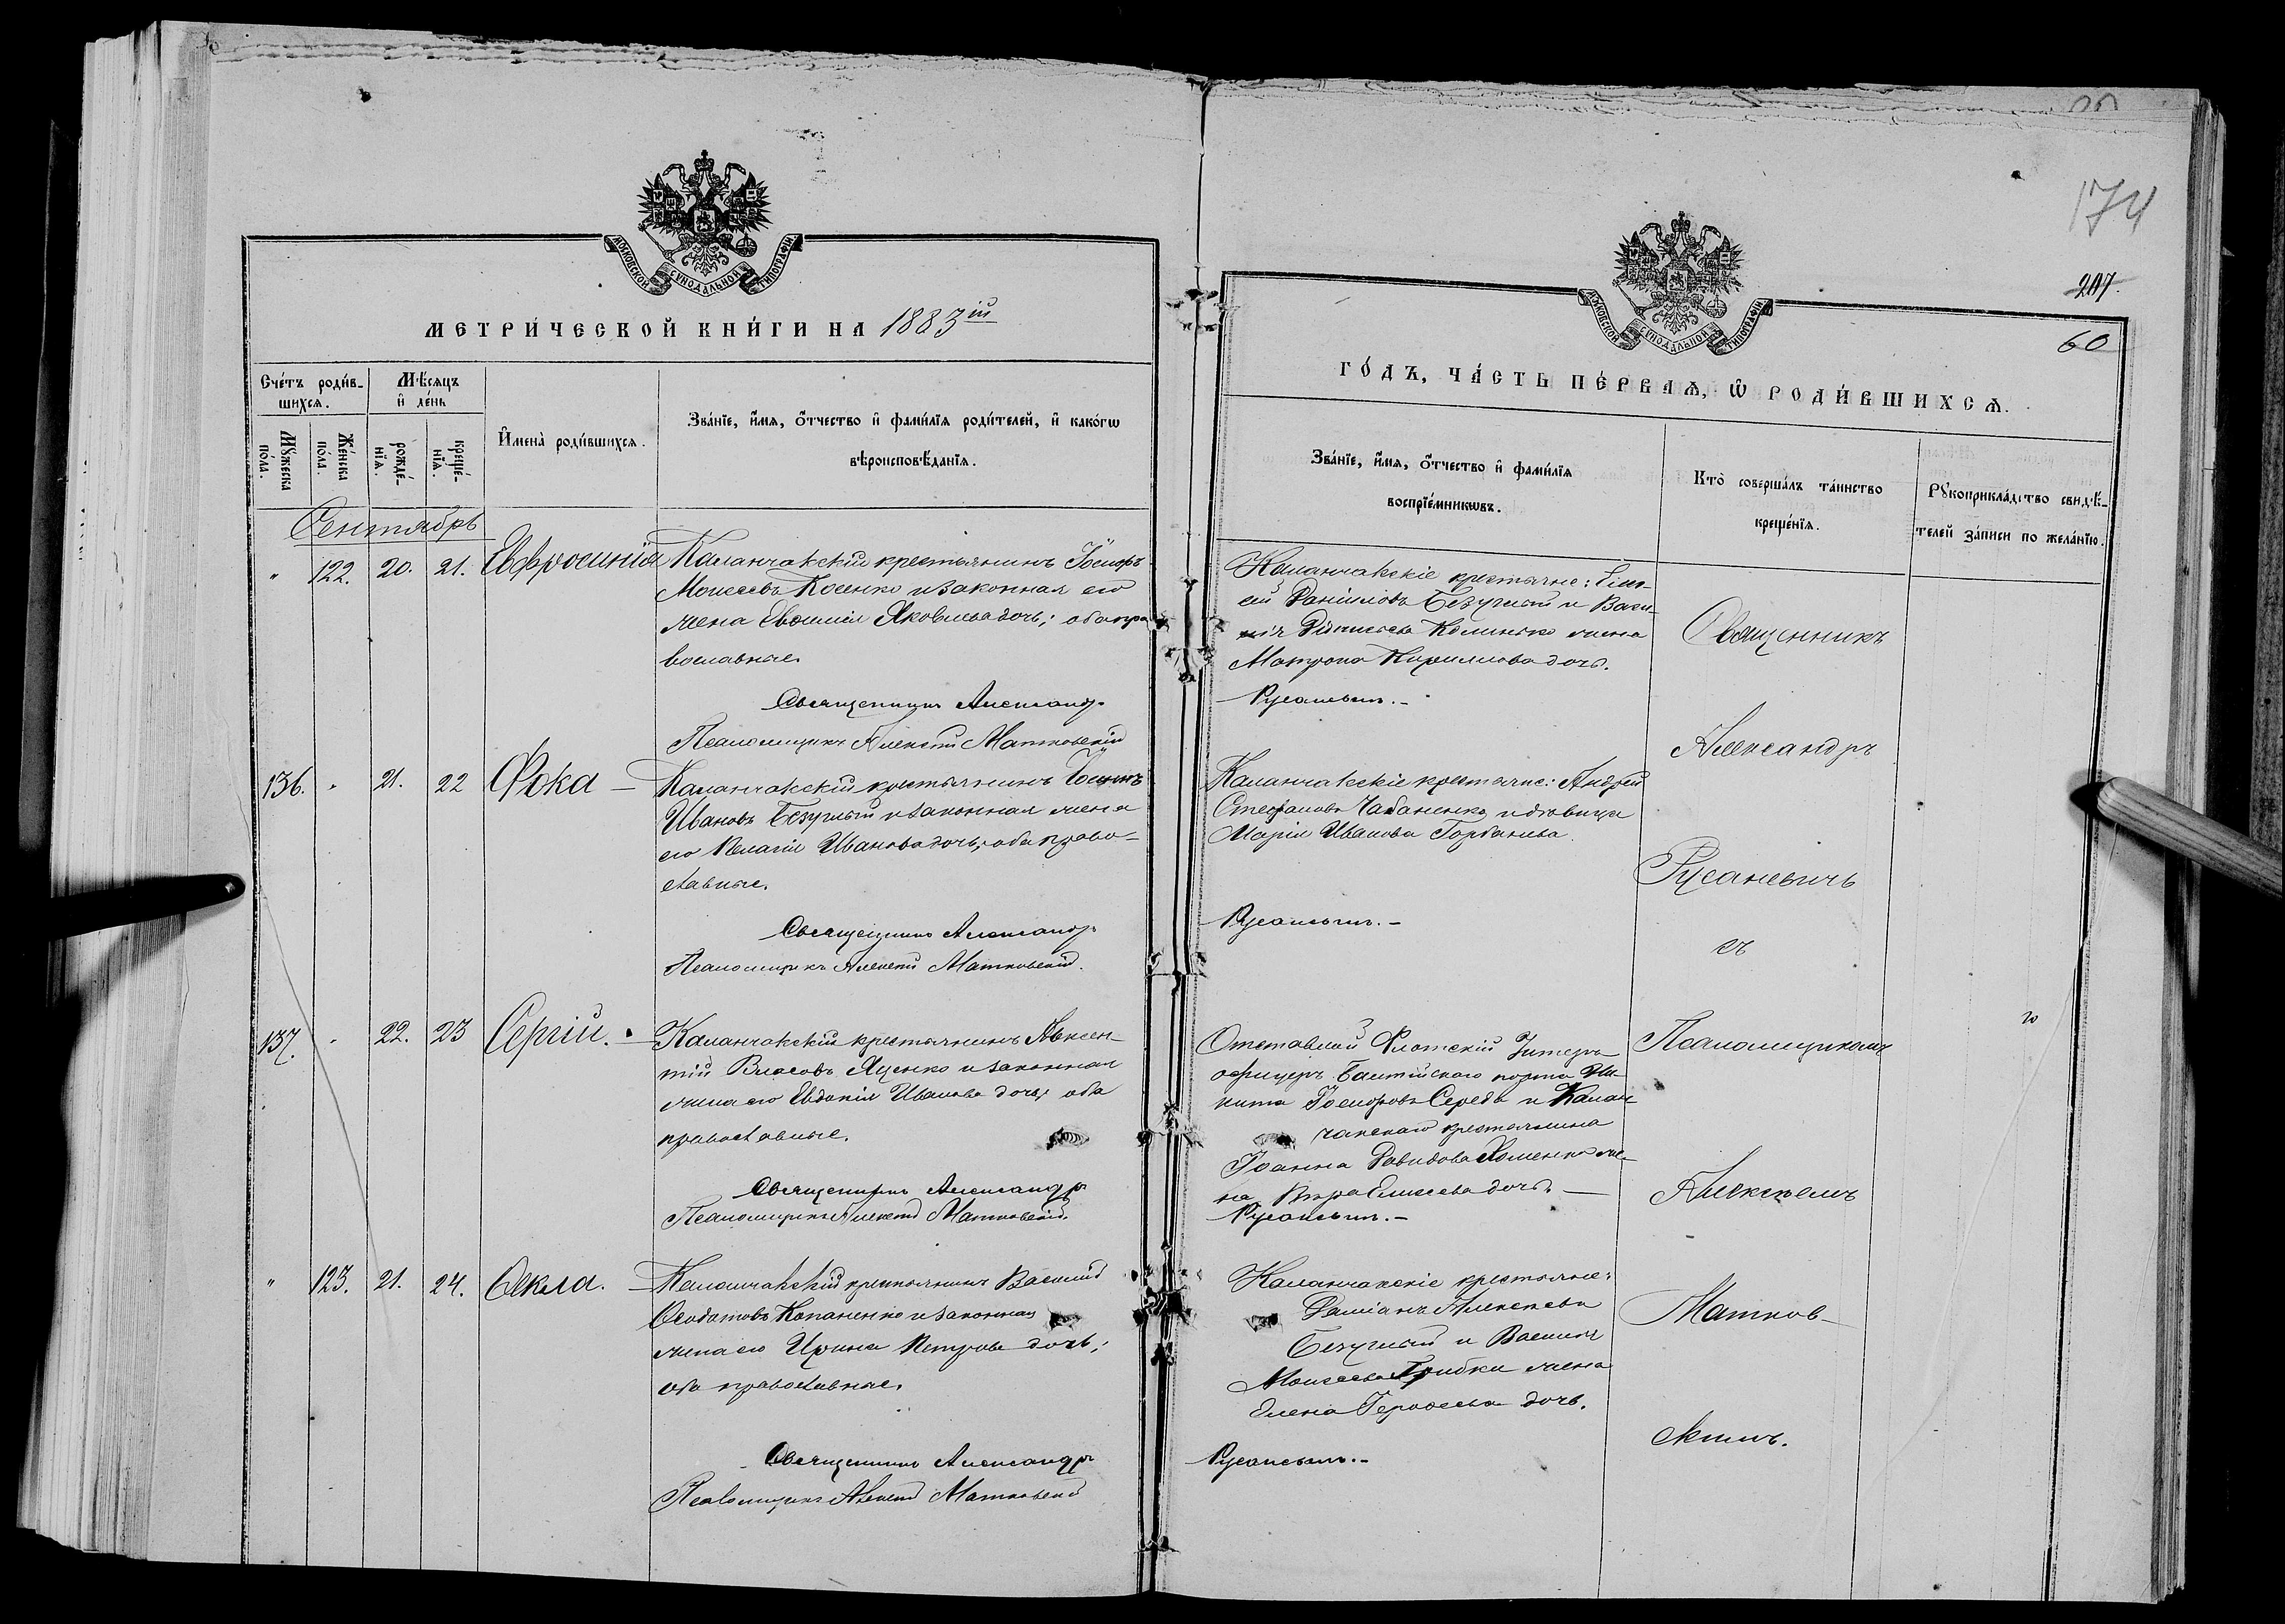 МОСКОВСКОЙ СѴНОДАЛЬНОЙ ТИПОГРАФІИ
МЕТРИ́ЧЕСКОЙ КНИ́ГИ НА 1883 ій
Сче́тъ роди́в-
шихсѧ.
Мѣ́сѧцъ
и҆ де́нь
Мꙋ́жеска
по́ла.
Же́нска
по́ла.
рожде́-
нїѧ.
креще́-
нїѧ.
И҆мена̀ роди́вшихсѧ.
Зва́нїе, и҆́мѧ, ѻ҆́тчество и҆ фами́лїѧ роди́телей, и҆ како́гѡ
вѣроисповѣ́данїѧ.
Сентябрь
" 122. 20. 21. Евфросинія
Каланчакскій крестьянинъ Ѳеодоръ
Моисеевъ Косенко и законная его
жена Евфимія Яковлева дочь; оба пра
вославные.
Священникъ Александръ
Псаломщикъ Алексѣй Матковскій
136. " 21. 22 Фока —
Каланчакскій крестьянинъ
Ивановъ Безуглый и законная жена
его Пелагія Иванова дочь; оба право-
славные.
Священникъ Александръ
Псаломщикъ Алексѣй Матковскій.
137. " 22. 23 Сергій. —
Каланчакскій крестьянинъ Авксен-
тій Власовъ Яценко и законная
жена его Евдокія Иванова дочь; оба
православные.
Священникъ Александръ
Псаломщикъ Алексѣй Матковскій.
" 123. 21. 24. Ѳекла. —
Каланчакскій крестьянинъ Василій
Ѳеодотовъ Копаненко и законная
жена его Ирина Петрова дочь;
оба православные.
Священникъ Александръ
Псаломщикъ Алексѣй Матковскій
174
207.
60
МОСКОВСКОЙ СѴНОДАЛЬНОЙ ТИПОГРАФІИ
ГО́ДЪ, ЧА́СТЬ ПЕ́РВАѦ, Ѡ҆ РОДИ́ВШИХСѦ.
Зва́нїе, и҆́мѧ, ѻ҆́тчество и҆ фами́лїѧ
воспрїе́мникѡвъ.
Кто̀ соверша́лъ та́инство
креще́нїѧ.
Рꙋкоприкла́дство свидѣ́-
телей за́писи по жела́нїю.
Каланчакскіе крестьяне: Елис-
ей Даніиловъ Безуглый и Васи-
лія жена
Матрона Кириллова дочь.
Русаневичъ. –
Каланчакскіе крестьяне: Андрей
Стефановъ Чабаненко и вдовица
Марія Иванова Горбанева.
Русаневичъ. –
Отставной Флотскій Унтеръ-
офицеръ Балтійскаго порта Ни-
кита Ѳеодоровъ Середа и Калан
чакскаго крестьянина
Іоанна Давидова Хоменко же-
на Вѣра Елисеева дочь. —
Русаневичъ. –
Каланчакскіе крестьяне:
Даміанъ Алексѣевъ
Безуглый и Василія
Моисеева Грибка жена
Елена дочь.
Русаневичъ. –
Священникъ
Александръ
Русаневичъ
съ
Псаломщикомъ
Алексѣемъ
Матков-
скимъ.